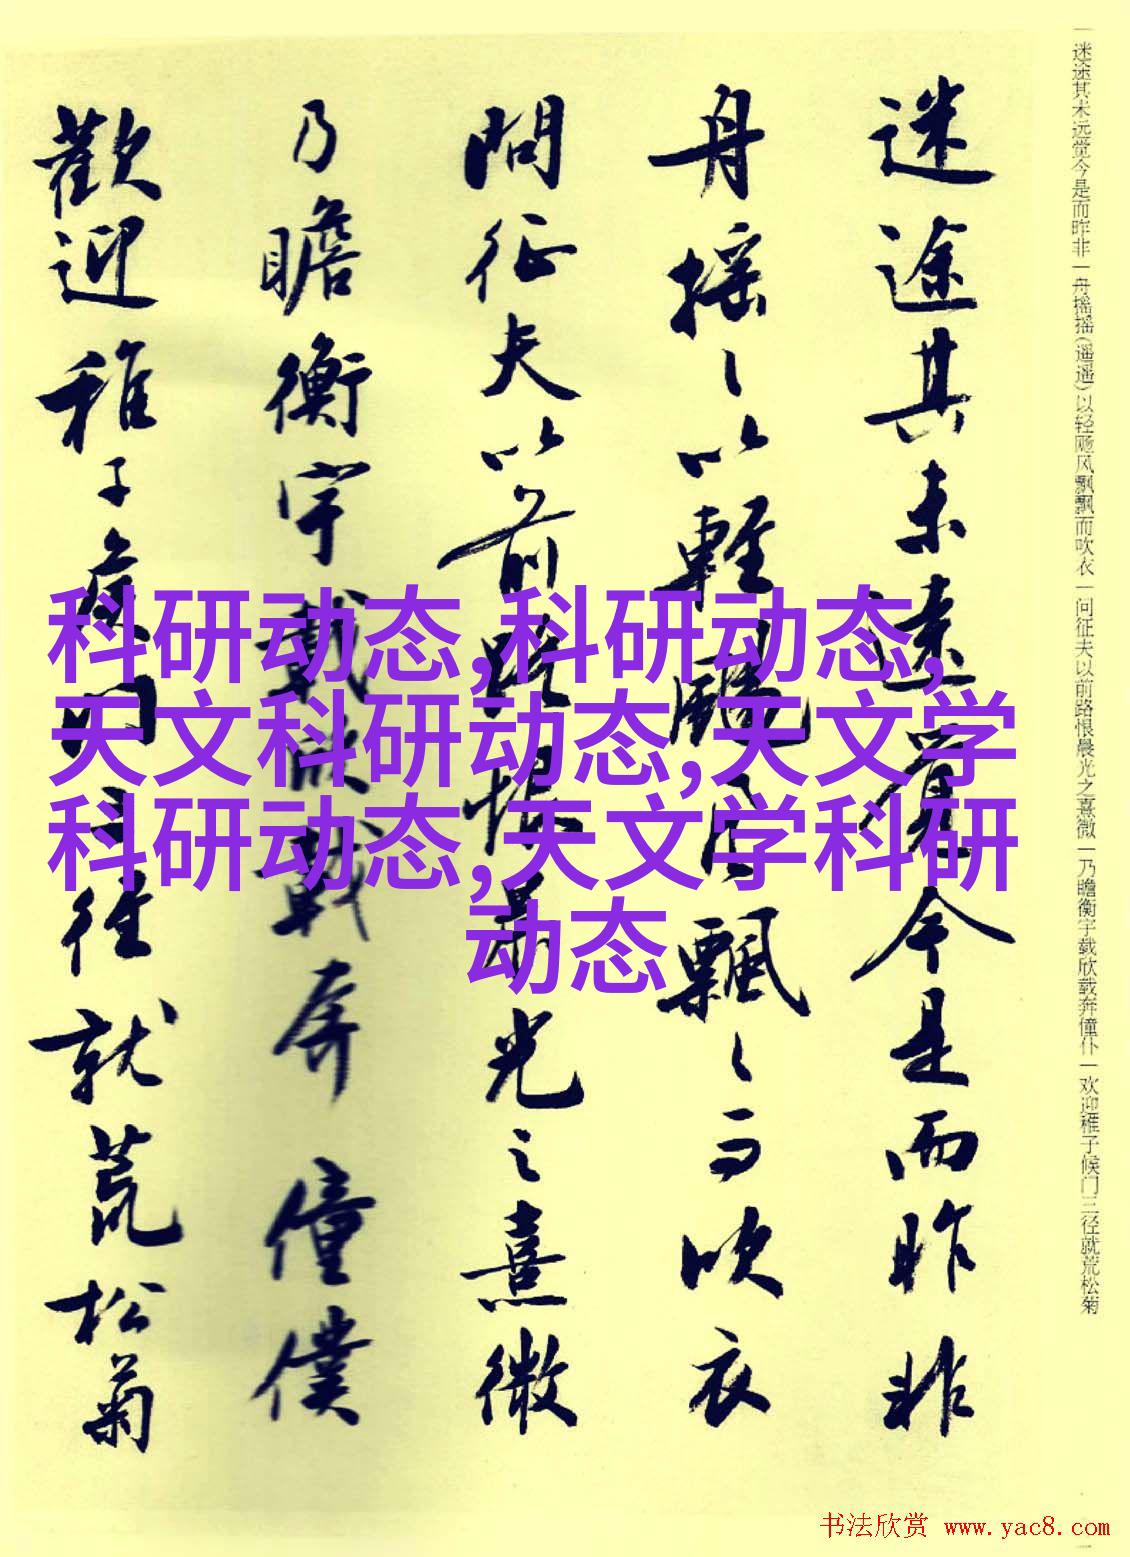 迷途其未远觉今是而昨非一舟摇摇(遥遥)以轻飏风飘飘而吹衣一问征夫以前路恨晨光之熹微一乃瞻衡宇载欣载奔僮仆一欢迎稚子候门三径就荒松菊
迷途其未遠覺今是而昨非
舟搖〻以輕颺風飄〻而吹衣
問征夫以前路恨晨光之熹微
乃瞻衡宇載欣載奔僮僕
歡迎稚子候門三徑就荒松菊
科研动态,科研动态,
天文科研动态,天文学
科研动态,天文学科研
动态
书法欣赏 www.yac8.com